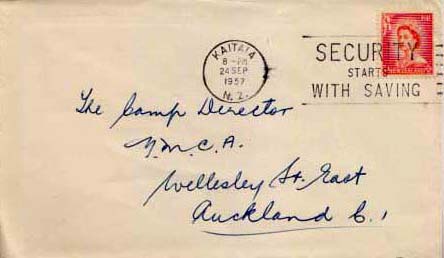 KAITAIA
8 - PM
24 SEP
1957
N. Z.
SECURITY
STARTS
WITH SAVING
NEW ZEALAND
The Camp Director
Y.M.C.A.
Wellesley St. East
Auckland C.1